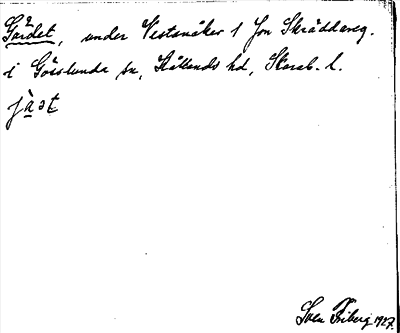 Gärdet, under Vestanåker 1 Jon Skräddareg.
i Gösslunda sn, Kållands hd, Skarab. l.
Sven Friberg 1927